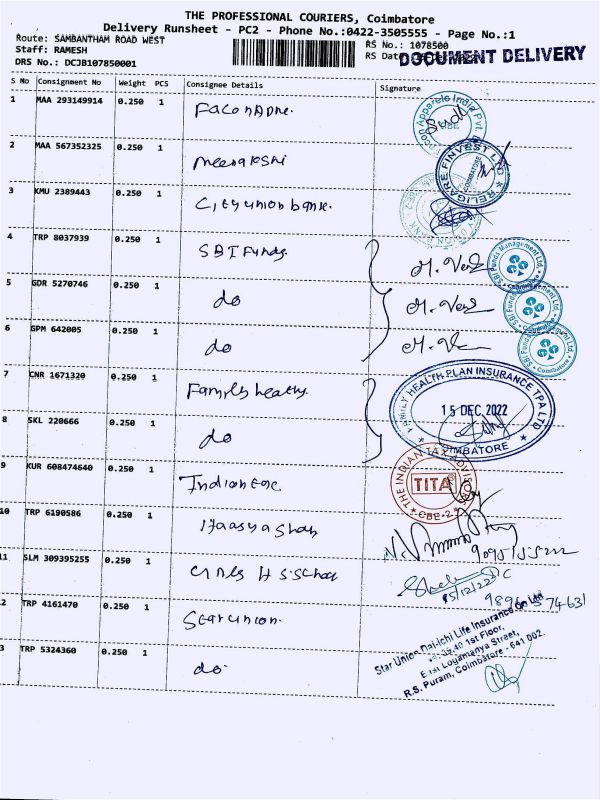 THE PROFESSIONAL COURIERS, Coimbatore
Delivery Runsheet - PC2 - Phone No.:0422-3505555 - Page No.:1
Route: SAMBANTHAM ROAD WEST
RS No.: 1078500
Staff: RAMESH
RS Date
DOCUMENT DELIVERY
DRS No.: DCJB107850001
S No Consignment No Weight PCS Consignee Details Signature
1 MAA 293149914 0.250 1
2 MAA 567352325 0.250 1 meenakshi
RELIGARE FINVEST LTD COIMBATORE
3 KMU 2389443 0.250 1 City union bank.
4 TRP 8037939 0.250 1 SBI Funds. M. Venk
SBI Funds Management Ltd. Coimbatore
5 GDR 5270746 0.250 1 do M. Venk
SBI Funds Management Ltd. Coimbatore
6 GPM 642005 0.250 1 do
SBI Funds Management Ltd. Coimbatore
7 CNR 1671320 0.250 1 Family healthy.
FAMILY HEALTH PLAN INSURANCE TPA LTD
15 DEC 2022
COIMBATORE
8 SKL 220666 0.250 1 do
9 KUR 608474640 0.250 1
THE INDIAN TAX ADVISOR
TITA
CBE-2
10 TRP 6190586 0.250 1
11 SLM 309395255 0.250 1
15/12/22
2 TRP 4161470 0.250 1 Star union.
Star Union Dai-ichi Life Insurance Co Ltd
1st Floor,
East Logamanya Street,
R.S. Puram, Coimbatore - 641 002.
3 TRP 5324360 0.250 1 do